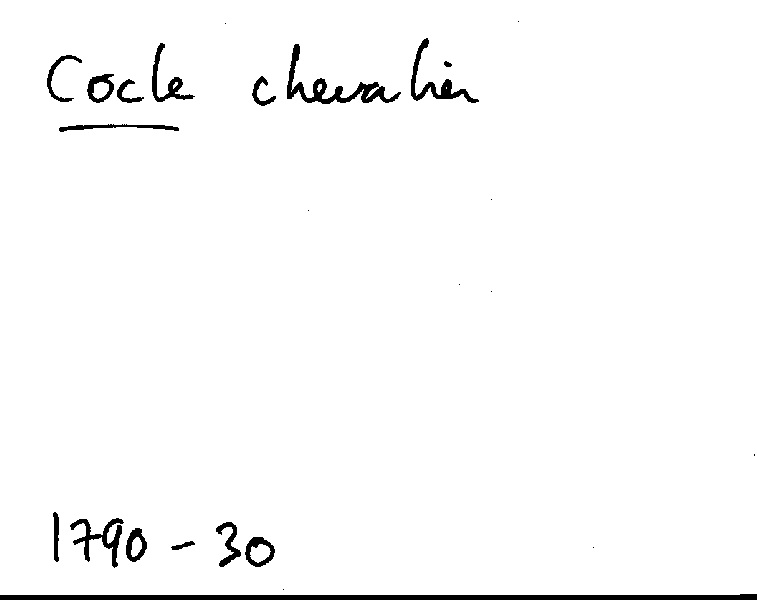 Cocle chevalier
1790 - 30